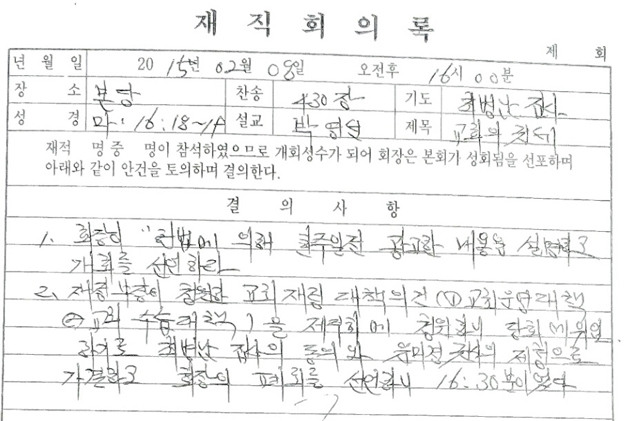 재 직 회 의 록
제 회
년 월 일 2015년 02월 08일 오전후 16시 00분
장 소 본당 찬송 430장 기도 최병난 집사
성 경 마:16:18~19 설교 박영 제목 교회의 권세
재적 명중 명이 참석하였으므로 개회성수가 되어 회장은 본회가 성회됨을 선포하며
아래와 같이 안건을 토의하며 결의한다.
결 의 사 항
1. 회장이 "헌법에 의해 한주일전 광고한 내용을 설명하고
개회를 선언하다
2. 재정부장이 청원한 교회 재정 대책의 건 (㉠교회운영대책
㉡교회 수습대책)을 제직회에 청원하니 당회에 위임
하기로 최병난 집사의 동의와 유미정 집사의 재청으로
가결하고 회장이 폐회를 선언하니 16:30분이었다